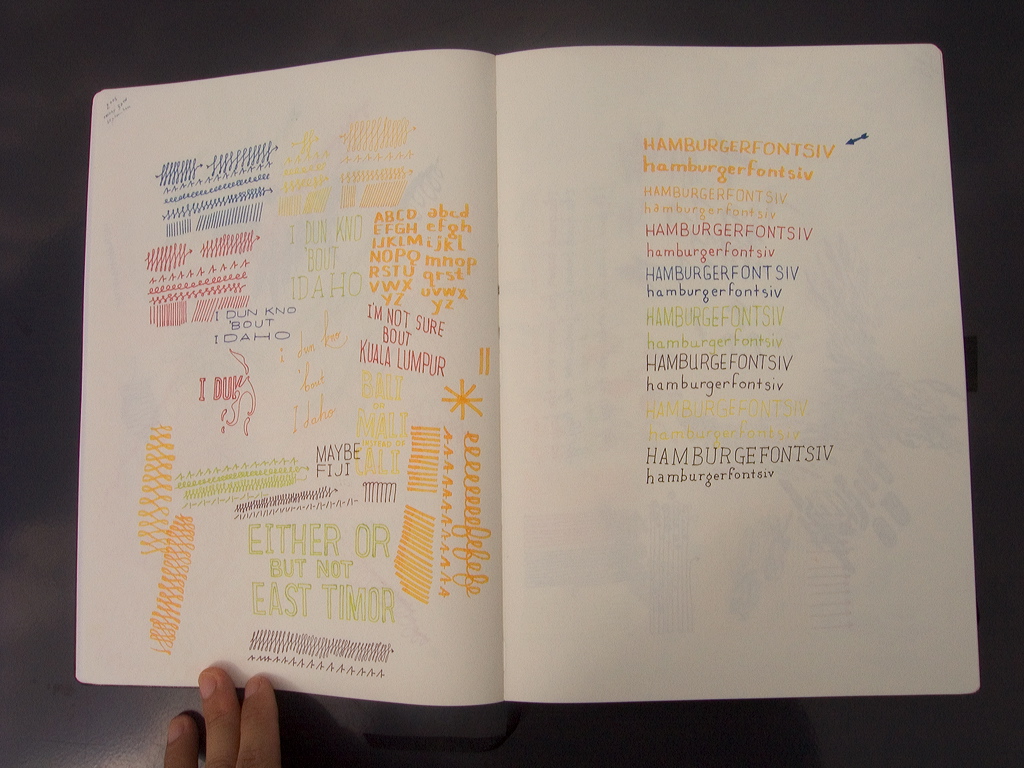 I DUN KNO
'BOUT
IDAHO
ABCD
EFGH
IJKLM
NOPQ
RSTU
VWX
YZ
abcd
efgh
ijkl
mnop
qrst
uvwx
yz
I DUN KNO
'BOUT
IDAHO
I'M NOT SURE
BOUT
KUALA LUMPUR
i dun kno
'bout
Idaho
I DUN
BALI
OR
MALI
INSTEAD OF
CALI
MAYBE
FIJI
EITHER OR
BUT NOT
EAST TIMOR
HAMBURGERFONTSIV
hamburgerfontsiv
HAMBURGERFONTSIV
hamburgerfontsiv
HAMBURGERFONTSIV
hamburgerfontsiv
HAMBURGERFONTSIV
hamburgerfontsiv
HAMBURGEFONTSIV
hamburgefontsiv
HAMBURGEFONTSIV
hamburgerfontsiv
HAMBURGEFONTSIV
hamburgerfontsiv
HAMBURGEFONTSIV
hamburgerfontsiv